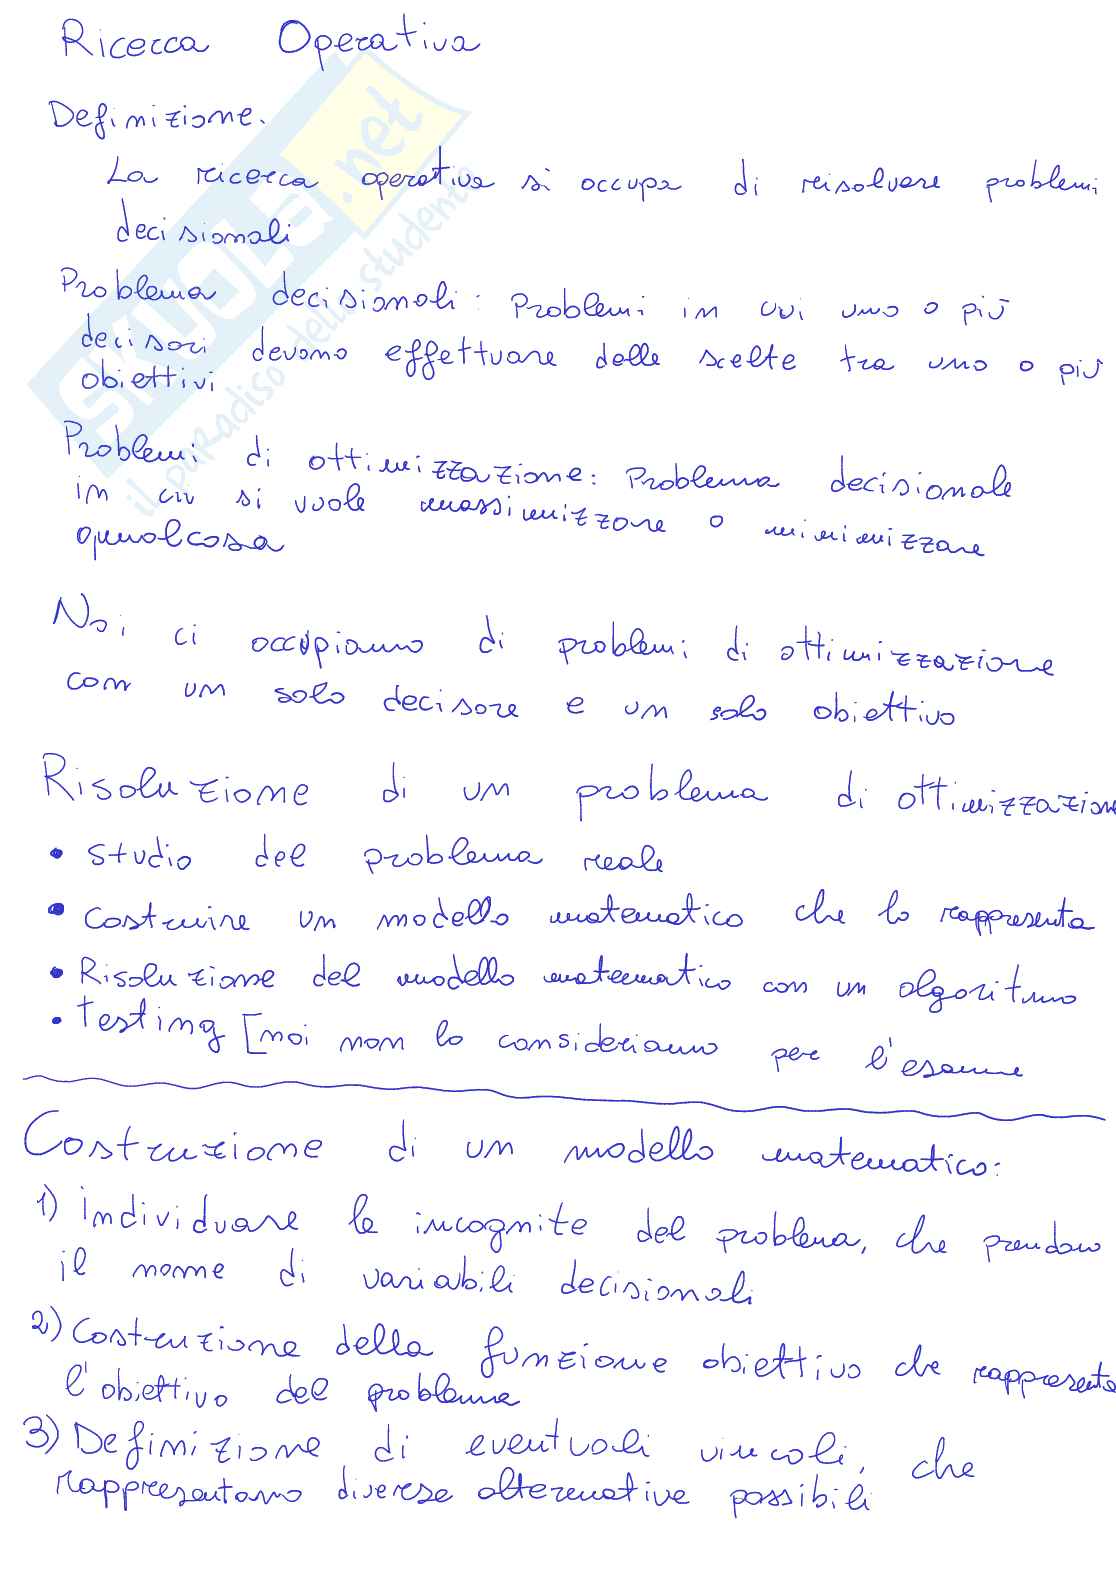 Ricerca Operativa
Definizione.
La ricerca operativa si occupa di risolvere problemi
decisionali
Problema decisionali: Problemi in cui uno o più
decisori devono effettuare delle scelte tra uno o più
obiettivi
Problemi di ottimizzazione: Problema decisionale
in cui si vuole massimizzare o minimizzare
qualcosa
Noi ci occupiamo di problemi di ottimizzazione
con un solo decisore e un solo obiettivo
Risoluzione di un problema di ottimizzazione
• studio del problema reale
• Costruire un modello matematico che lo rappresenta
• Risoluzione del modello matematico con un algoritmo
• Testing [noi non lo consideriamo per l'esame
Costruzione di un modello matematico:
1) Individuare le incognite del problema, che prendono
il nome di variabili decisionali
2) Costruzione della funzione obiettivo che rappresenta
l'obiettivo del problema
3) Definizione di eventuali vincoli, che
rappresentano diverse alternative possibili
SKUOLA.net
il paradiso dello studente